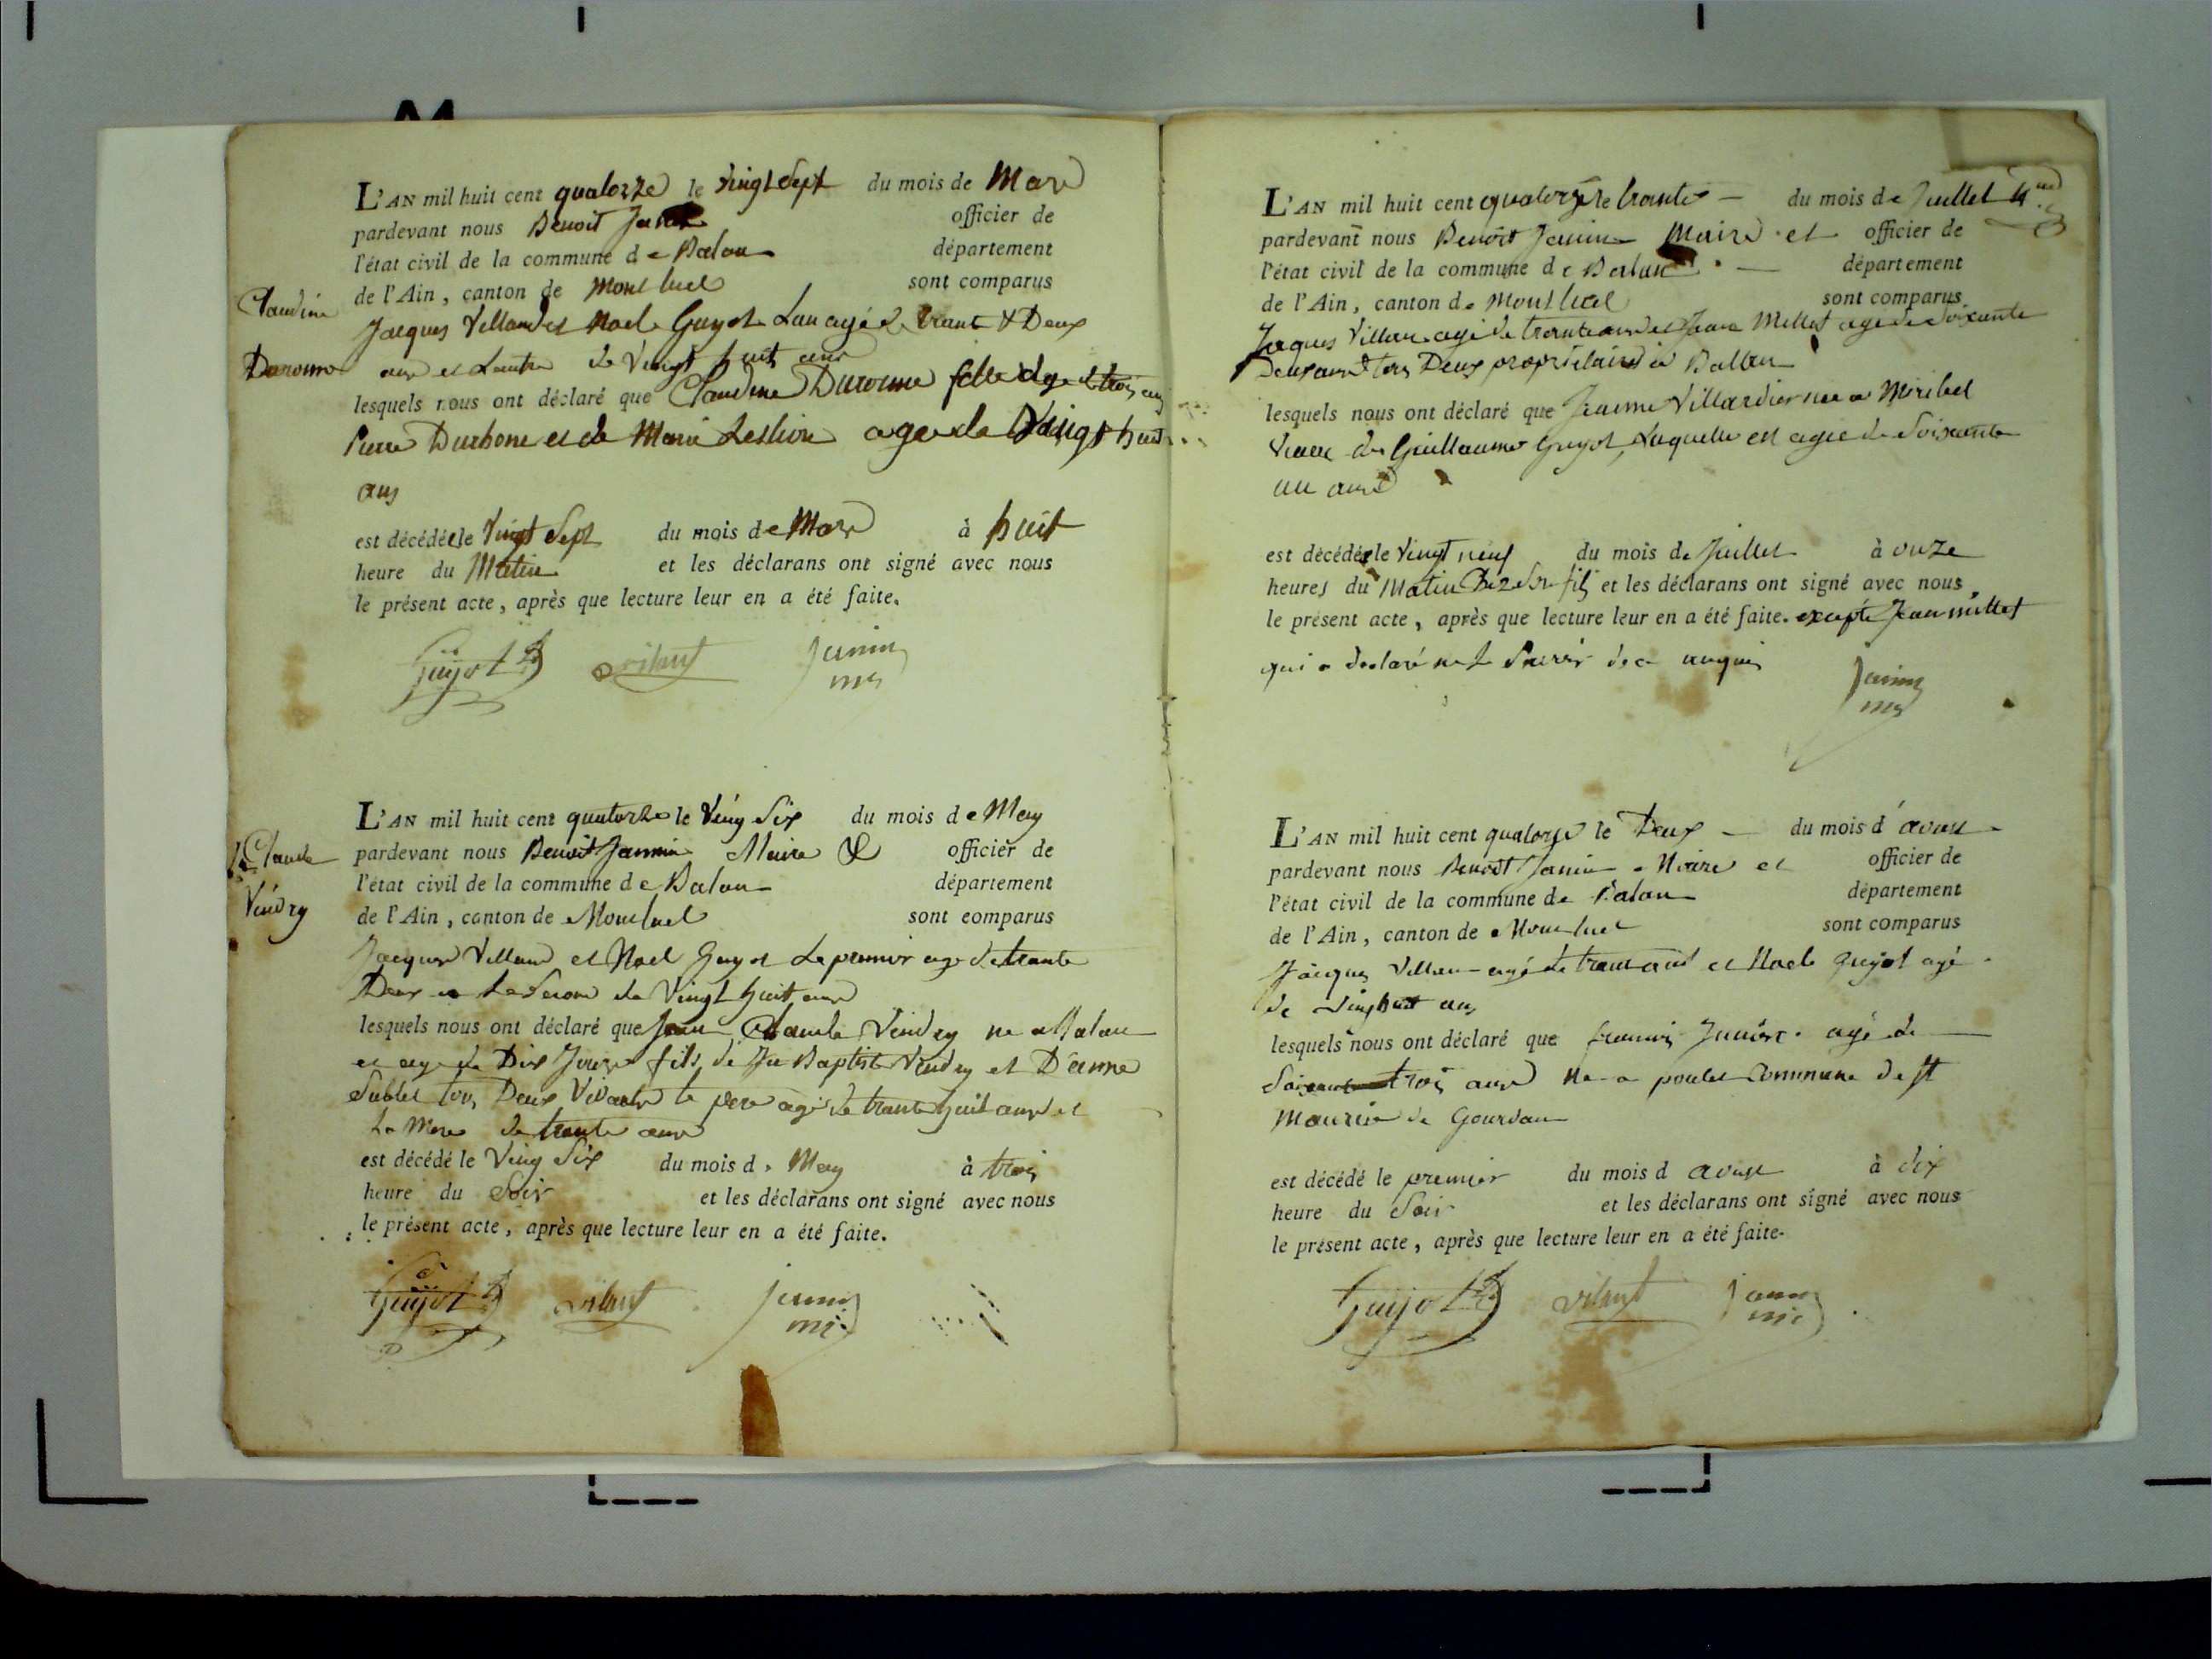 L'AN mil huit cent quatorze le vingt Sept du mois de Mars
pardevant nous Benoit officier de
l'état civil de la commune de Balan département
de l'Ain, canton de Montluel sont comparus
Claudine
Jacques Villand et Noel Guyot Lun agé de trante & Deux
Duronne
ans et Lautre de Vingt huit ans
lesquels nous ont déclaré que Claudine Duronne fille agé de trois ans
Pierre Durbone et de Marie agée de Vingt huit
ans
est décédée le Vingt Sept du mois de Mars à huit
heure du Matin et les déclarans ont signé avec nous
le présent acte, après que lecture leur en a été faite.
Guyot Janin
L'AN mil huit cent quatorze le Ving Six du mois de May
Claude
pardevant nous Benoit Jannin Maire & officier de
l'état civil de la commune de Balan département
Vendry
de l'Ain, canton de Montluel sont comparus
Jacques Villand et Noel Guyot Le premier agé de trante
Deux et Le Second de Vingt huit ans
lesquels nous ont déclaré que Jean Claude Vendry né a Balan
et agé de Dix Jours fils de Jn Baptiste Vendry et D'anne
Sublet tous Deux Vivants le pere agé de trante huit ans et
La Mere de trante ans
est décédé le Ving Six du mois de May à trois
heure du Soir et les déclarans ont signé avec nous
le présent acte, après que lecture leur en a été faite.
Guyot Janin
L'AN mil huit cent quatorze le trante du mois de Juillet
pardevant nous Benoit Janin Maire et officier de
l'état civil de la commune de Balan département
de l'Ain, canton de Montluel sont comparus
Jaques Villan agé de trante ans et Jean Millet agé de soixante
Deux ans tous Deux propriétaires à Ballan
lesquels nous ont déclaré que Jeanne Villardier née a Miribel
Veuve de Guillaume Guyot, Laquelle est agée de Soixante
un ans
est décédée le Vingt neuf du mois de Juillet à onze
heures du Matin Chez Son fils et les déclarans ont signé avec nous
le présent acte, après que lecture leur en a été faite. excepté Jean millet
qui a declaré ne Savoir de ce enquis
Janin
L'AN mil huit cent quatorze le Deux du mois d'aoust
pardevant nous Benoit Janin Maire et officier de
l'état civil de la commune de Balan département
de l'Ain, canton de Montluel sont comparus
Jaques Villan agé de trant ans et Noele guyot agé
de vingt huit ans
lesquels nous ont déclaré que francois agé de
Soixante trois ans Né a poulet Commune de St
Maurice de Gourdan
est décédé le premier du mois d aoust à dix
heure du Soir et les déclarans ont signé avec nous
le présent acte, après que lecture leur en a été faite.
Guyot Janin